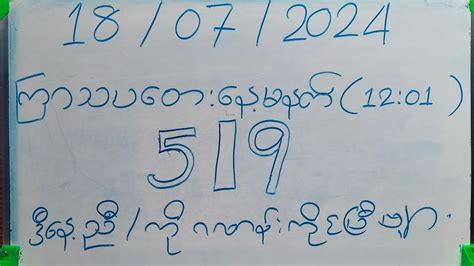 18/07/2024
ကြာသပတေးနေ့မနက်(12:01)
519
ဒီနေ့ညီ/ကိုဂဏန်းကိုင်ပြီဗျာ.